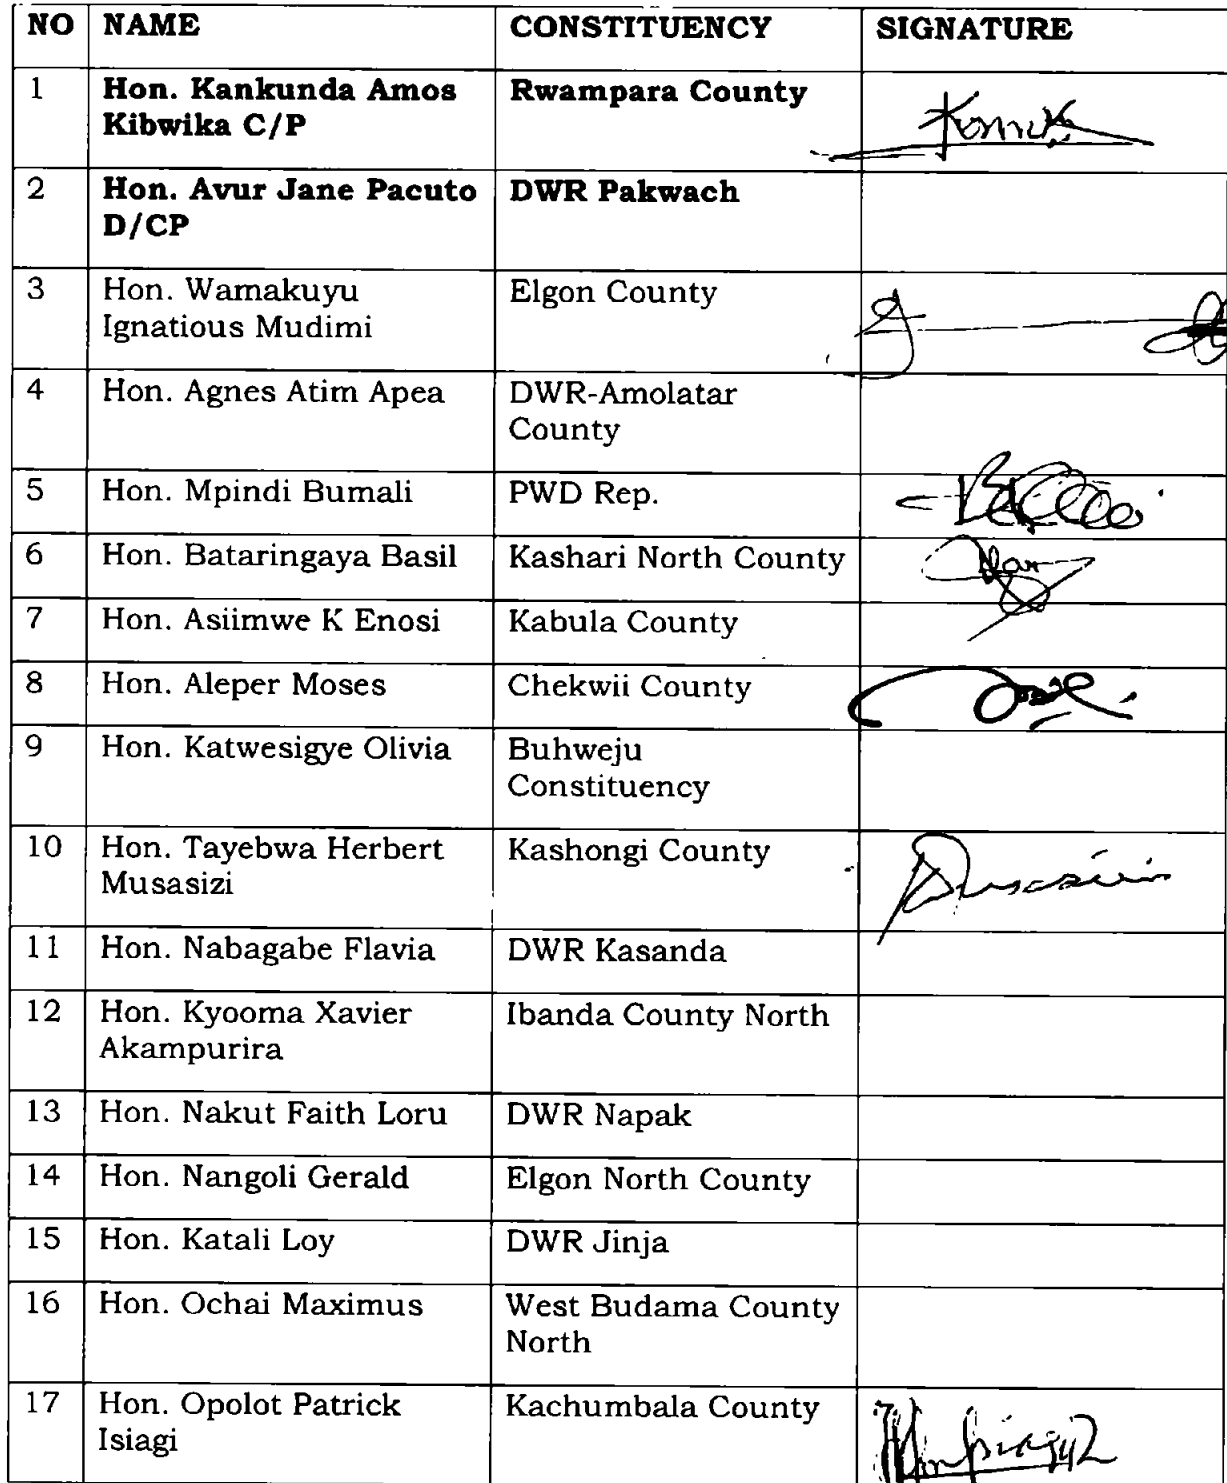 NO NAME CONSTITUENCY SIGNATURE
1 Hon. Kankunda Amos Rwampara County
Kibwika C/P
2 Hon. Avur Jane Pacuto DWR Pakwach
D/CP
3 Hon. Wamakuyu Elgon County
Ignatious Mudimi
4 Hon. Agnes Atim Apea DWR-Amolatar
County
5 Hon. Mpindi Bumali PWD Rep.
6 Hon. Bataringaya Basil Kashari North County
7 Hon. Asiimwe K Enosi Kabula County
8 Hon. Aleper Moses Chekwii County
9 Hon. Katwesigye Olivia Buhweju
Constituency
10 Hon. Tayebwa Herbert Kashongi County
Musasizi
11 Hon. Nabagabe Flavia DWR Kasanda
12 Hon. Kyooma Xavier Ibanda County North
Akampurira
13 Hon. Nakut Faith Loru DWR Napak
14 Hon. Nangoli Gerald Elgon North County
15 Hon. Katali Loy DWR Jinja
16 Hon. Ochai Maximus West Budama County
North
17 Hon. Opolot Patrick Kachumbala County
Isiagi